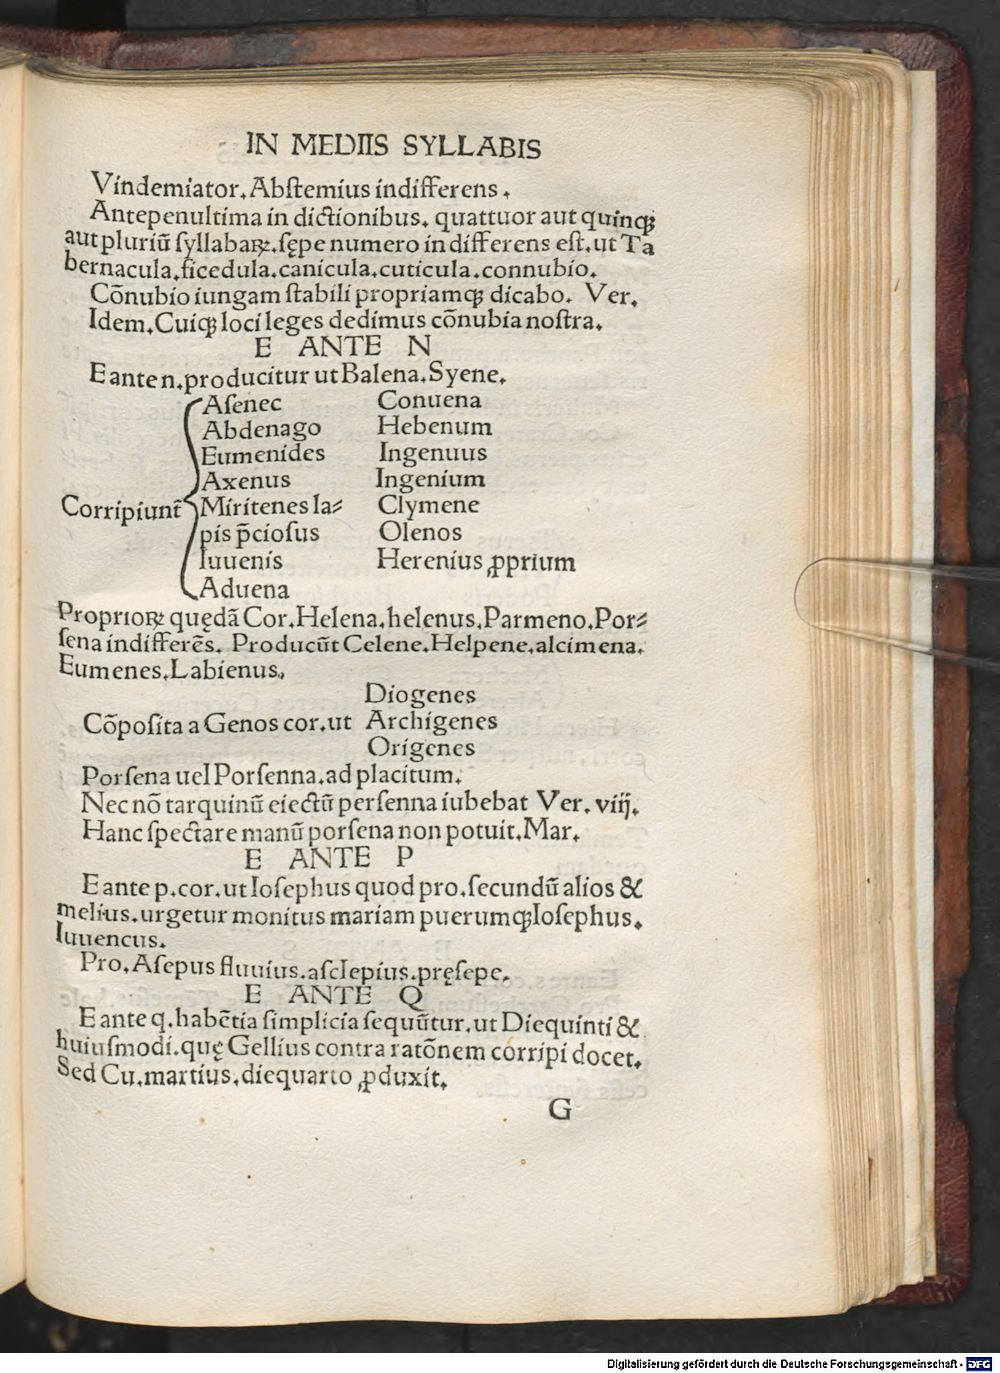 IN MEDIIS SYLLABIS
Vindemiator. Abſtemius indifferens.
Antepenultima in dictionibus. quattuor aut quinqꝫ
aut pluriū ſyllabaꝝ. ſępe numero indifferens eſt. ut Ta
bernacula. ficedula. canicula. cuticula. connubio.
Cōnubio iungam ſtabili propriamqꝫ dicabo. Ver.
Idem. Cuiqꝫ loci leges dedimus cōnubia noſtra.
E ANTE N
E ante n. producitur ut Balena. Syene.
Aſenec Conuena
Abdenago Hebenum
Eumenides Ingenuus
Axenus Ingenium
Corripiunt̄ Miritenes la⸗ Clymene
pis p̄cioſus Olenos
Iuuenis Herenius ꝓprium
Aduena
Proprioꝝ quędā Cor. Helena. helenus. Parmeno. Por⸗
ſena indifferēs. Producūt Celene. Helpene. alcimena.
Eumenes. Labienus.
Diogenes
Cōpoſita a Genos cor. ut Archigenes
Origenes
Porſena uel Porſenna. ad placitum.
Nec nō tarquinū eiectū perſenna iubebat Ver. viij.
Hanc ſpectare manū porſena non potuit. Mar.
E ANTE P
E ante p. cor. ut Ioſephus quod pro. ſecundū alios &
melius. urgetur monitus mariam puerumqꝫ Ioſephus.
Iuuencus.
Pro. Aſepus fluuius. aſclepius. pręſepe.
E ANTE Q
E ante q. habētia ſimplicia ſequūtur. ut Diequinti &
huiuſmodi. quę Gellius contra ratōnem corripi docet.
Sed Cu. martius. diequarto ꝓduxit.
G
Digitalisierung gefördert durch die Deutsche Forschungsgemeinschaft - DFG